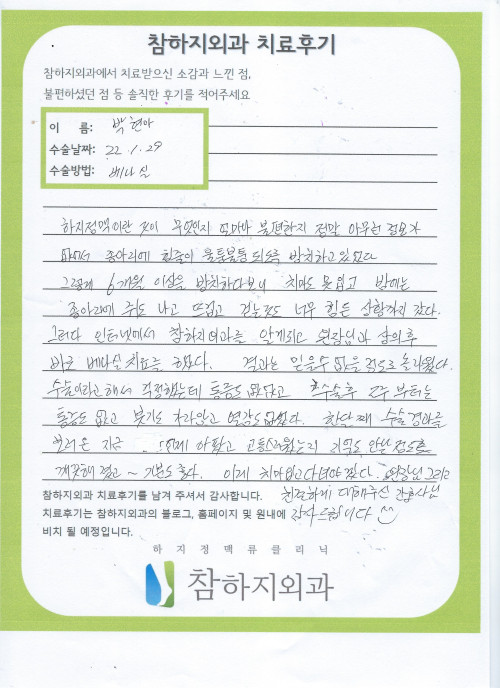 참하지외과 치료후기
참하지외과에서 치료받으신 소감과 느낀 점,
불편하셨던 점 등 솔직한 후기를 적어주세요
이 름: 박현아
수술날짜: 22. 1. 29
수술방법: 베나실
하지정맥이란 것이 무엇인지 얼마나 불편한지 정말 아무런 정보가
없어서 종아리에 핏줄이 울퉁불퉁 되도록 방치하고 있었다
그렇게 6개월 이상을 방치하다보니 치마도 못입고 밤에는
종아리에 쥐도 나고 뜨겁고 걷는것도 너무 힘든 상황까지 갔다.
그러다 인터넷에서 참하지외과를 알게되고 원장님과 상의후
바로 베나실치료를 하였다. 결과는 믿을수 없을 정도로 놀라웠다.
수술이라고해서 걱정했는데 통증도 없었고 수술후 2주 부터는
통증도 없고 붓기도 가라앉고 열감도 없었다. 한달째 수술경과를
보러온 지금 언제 아팠고 고통스러웠는지 기억도 안날 정도로
깨끗해졌고~ 기분도 좋다. 이제 치마입고다녀야 겠다. 원장님 그리고
친절하게 대해주신 간호사님
감사드립니다
참하지외과 치료후기를 남겨 주셔서 감사합니다.
치료후기는 참하지외과의 블로그, 홈페이지 및 원내에
비치 될 예정입니다.
하지정맥류클리닉
참하지외과